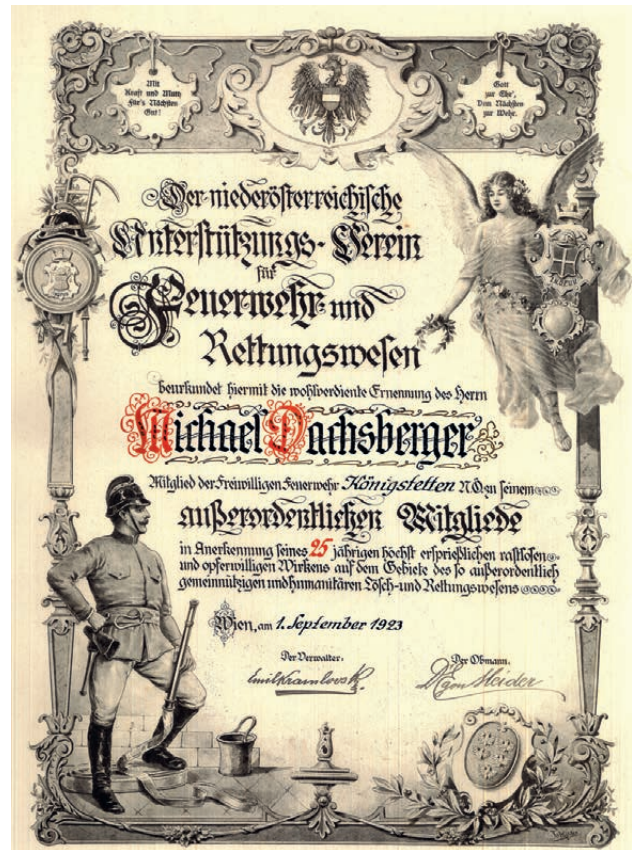 Mit
Kraft und Muth
Für's Nächsten
Gut!
Gott
zur Ehr',
Dem Nächsten
zur Wehr.
Der niederösterreichische
Unterstützungs-Verein
für
Feuerwehr- und
Rettungswesen
beurkundet hiermit die wohlverdiente Ernennung des Herrn
Michael Dachsberger
Mitglied der Freiwilligen Feuerwehr Königstetten N.Ö. zu seinem
außerordentlichen Mitgliede
in Anerkennung seines 25 jährigen höchst ersprießlichen rastlosen
und opferwilligen Wirkens auf dem Gebiete des so außerordentlich
gemeinnützigen und humanitären Lösch- und Rettungswesens
Wien, am 1. September 1923
Der Verwalter:
Der Obmann.